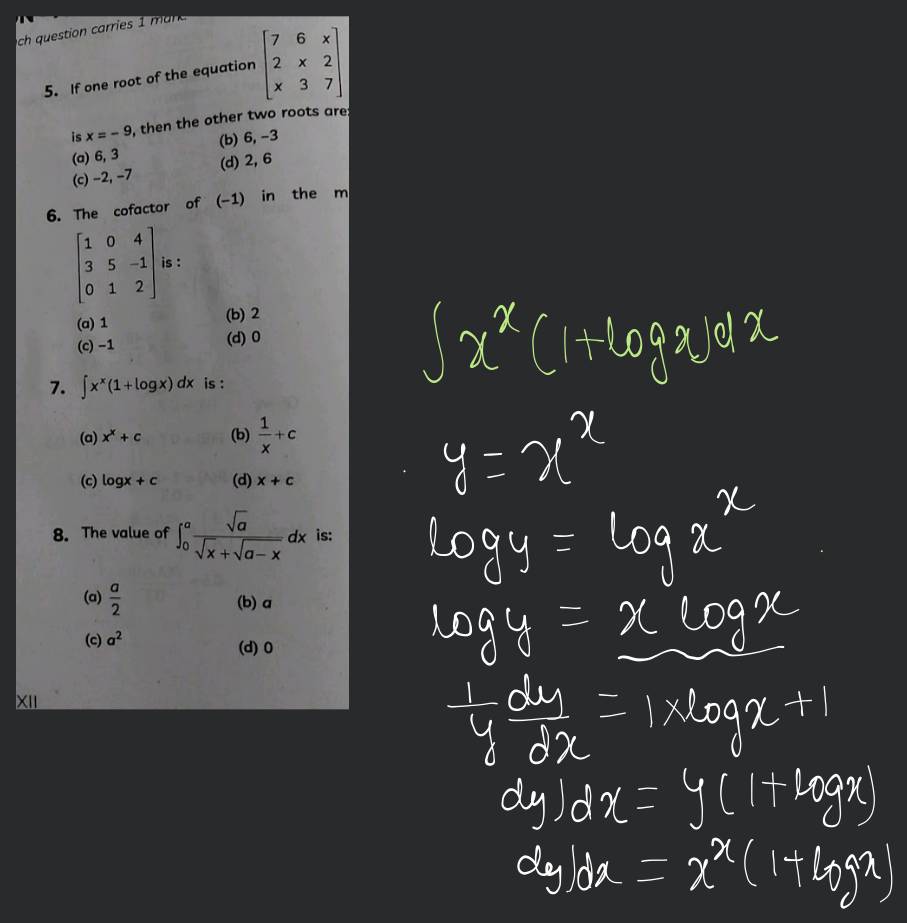 ch question carries 1 mark.
5. If one root of the equation [7 6 x; 2 x 2; x 3 7]
is x = – 9, then the other two roots are:
(a) 6, 3 (b) 6, –3
(c) –2, –7 (d) 2, 6
6. The cofactor of (–1) in the m
[1 0 4; 3 5 –1; 0 1 2] is :
(a) 1 (b) 2
(c) –1 (d) 0
7. ∫xˣ(1+logx) dx is :
(a) xˣ + c (b) 1/x + c
(c) logx + c (d) x + c
8. The value of ∫₀ᵃ √a/(√x + √(a – x)) dx is:
(a) a/2 (b) a
(c) a² (d) 0
XII
∫xˣ(1+logx)dx
y = xˣ
logy = logxˣ
logy = x logx
1/y dy/dx = 1×logx+1
dy/dx = y(1+logx)
dy/dx = xˣ(1+logx)